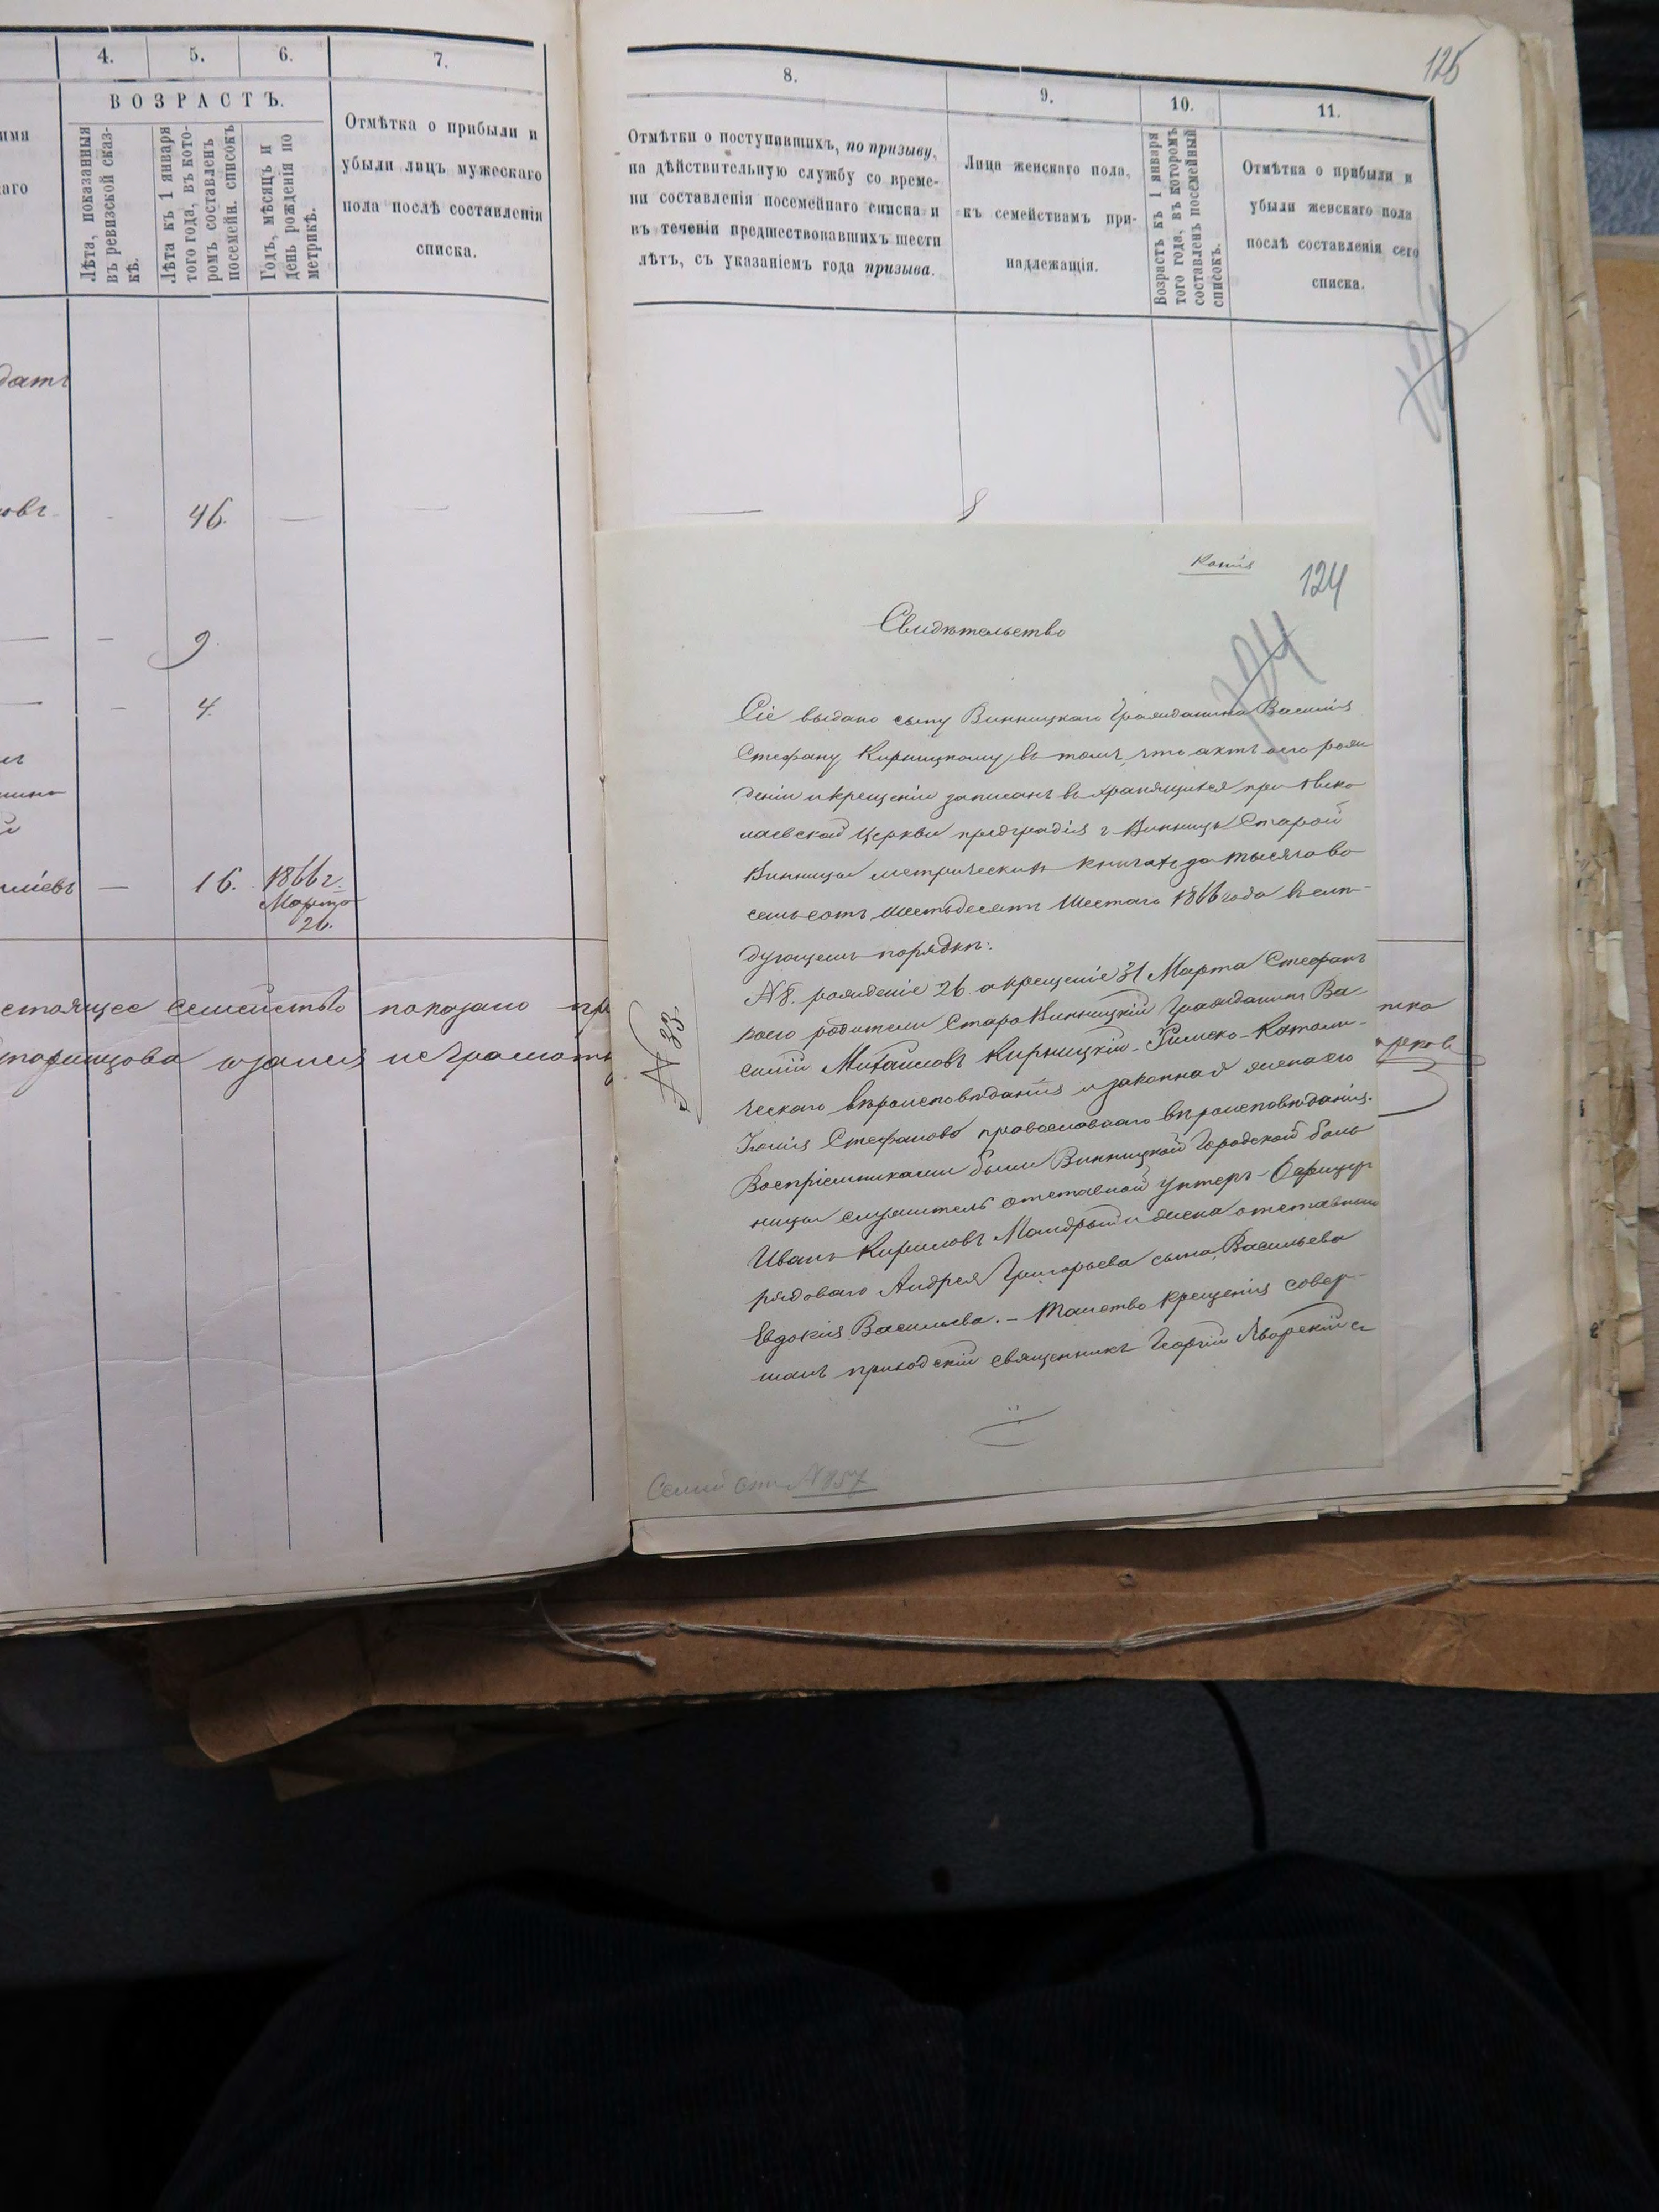 4. 5. 6. 7.
ВОЗРАСТЪ.
Лѣта, показанныя
въ ревизской сказ-
кѣ.
Лѣта къ 1 января
того года, въ кото-
ромъ составленъ
посемейн. списокъ
Годъ, мѣсяцъ и
день рожденія по
метрикѣ.
Отмѣтка о прибыли и
убыли лицъ мужескаго
пола послѣ составленія
списка.
46.
9.
4.
16. 1866 г.
Марта
26.
стоящее семейство показано
неграмотн
125
8. 9. 10. 11.
Отмѣтки о поступившихъ, по призыву,
на дѣйствительную службу со време-
ни составленія посемейнаго списка и
въ теченіи предшествовавшихъ шести
лѣтъ, съ указаніемъ года призыва.
Лица женскаго пола,
къ семействамъ при-
надлежащія.
Возрастъ къ 1 января
того года, въ которомъ
составленъ посемейный
списокъ.
Отмѣтка о прибыли и
убыли женскаго пола
послѣ составленія сего
списка.
Копія
124
124
Свидѣтельство
Сіе выдано сыну Винницкаго Гражданина Василія
Стефану Кирницкому въ томъ, что актъ его рож
деніи и крещеніи записанъ въ хранящихся при Нико
лаевской Церкви предградія г Винницы Старой
Винницы метрическихъ книгахъ за тысяча во
семьсотъ шестьдесятъ Шестаго 1866 года въ слѣ-
дующемъ порядкѣ:
N 8. рожденіе 26. а крещеніе 31 Марта Стефанъ
коего родители СтароВинницкій Гражданинъ Ва-
силій Михайловъ Кирницкій - Римско-Католи-
ческаго вѣроисповѣданія и законная жена его
Юлія Стефанова православнаго вѣроисповѣданія.
Воспріемниками были Винницкой Городской боль
ницы служитель отставной унтеръ-Офицеръ
Иванъ Кириловъ и жена отставнаго
рядоваго Андрея Григорьева сына Васильева
Евдокія Васильева. – Таинство крещенія совер-
шалъ приходскій священникъ Георгій Яворскій съ
N 33.
N 857